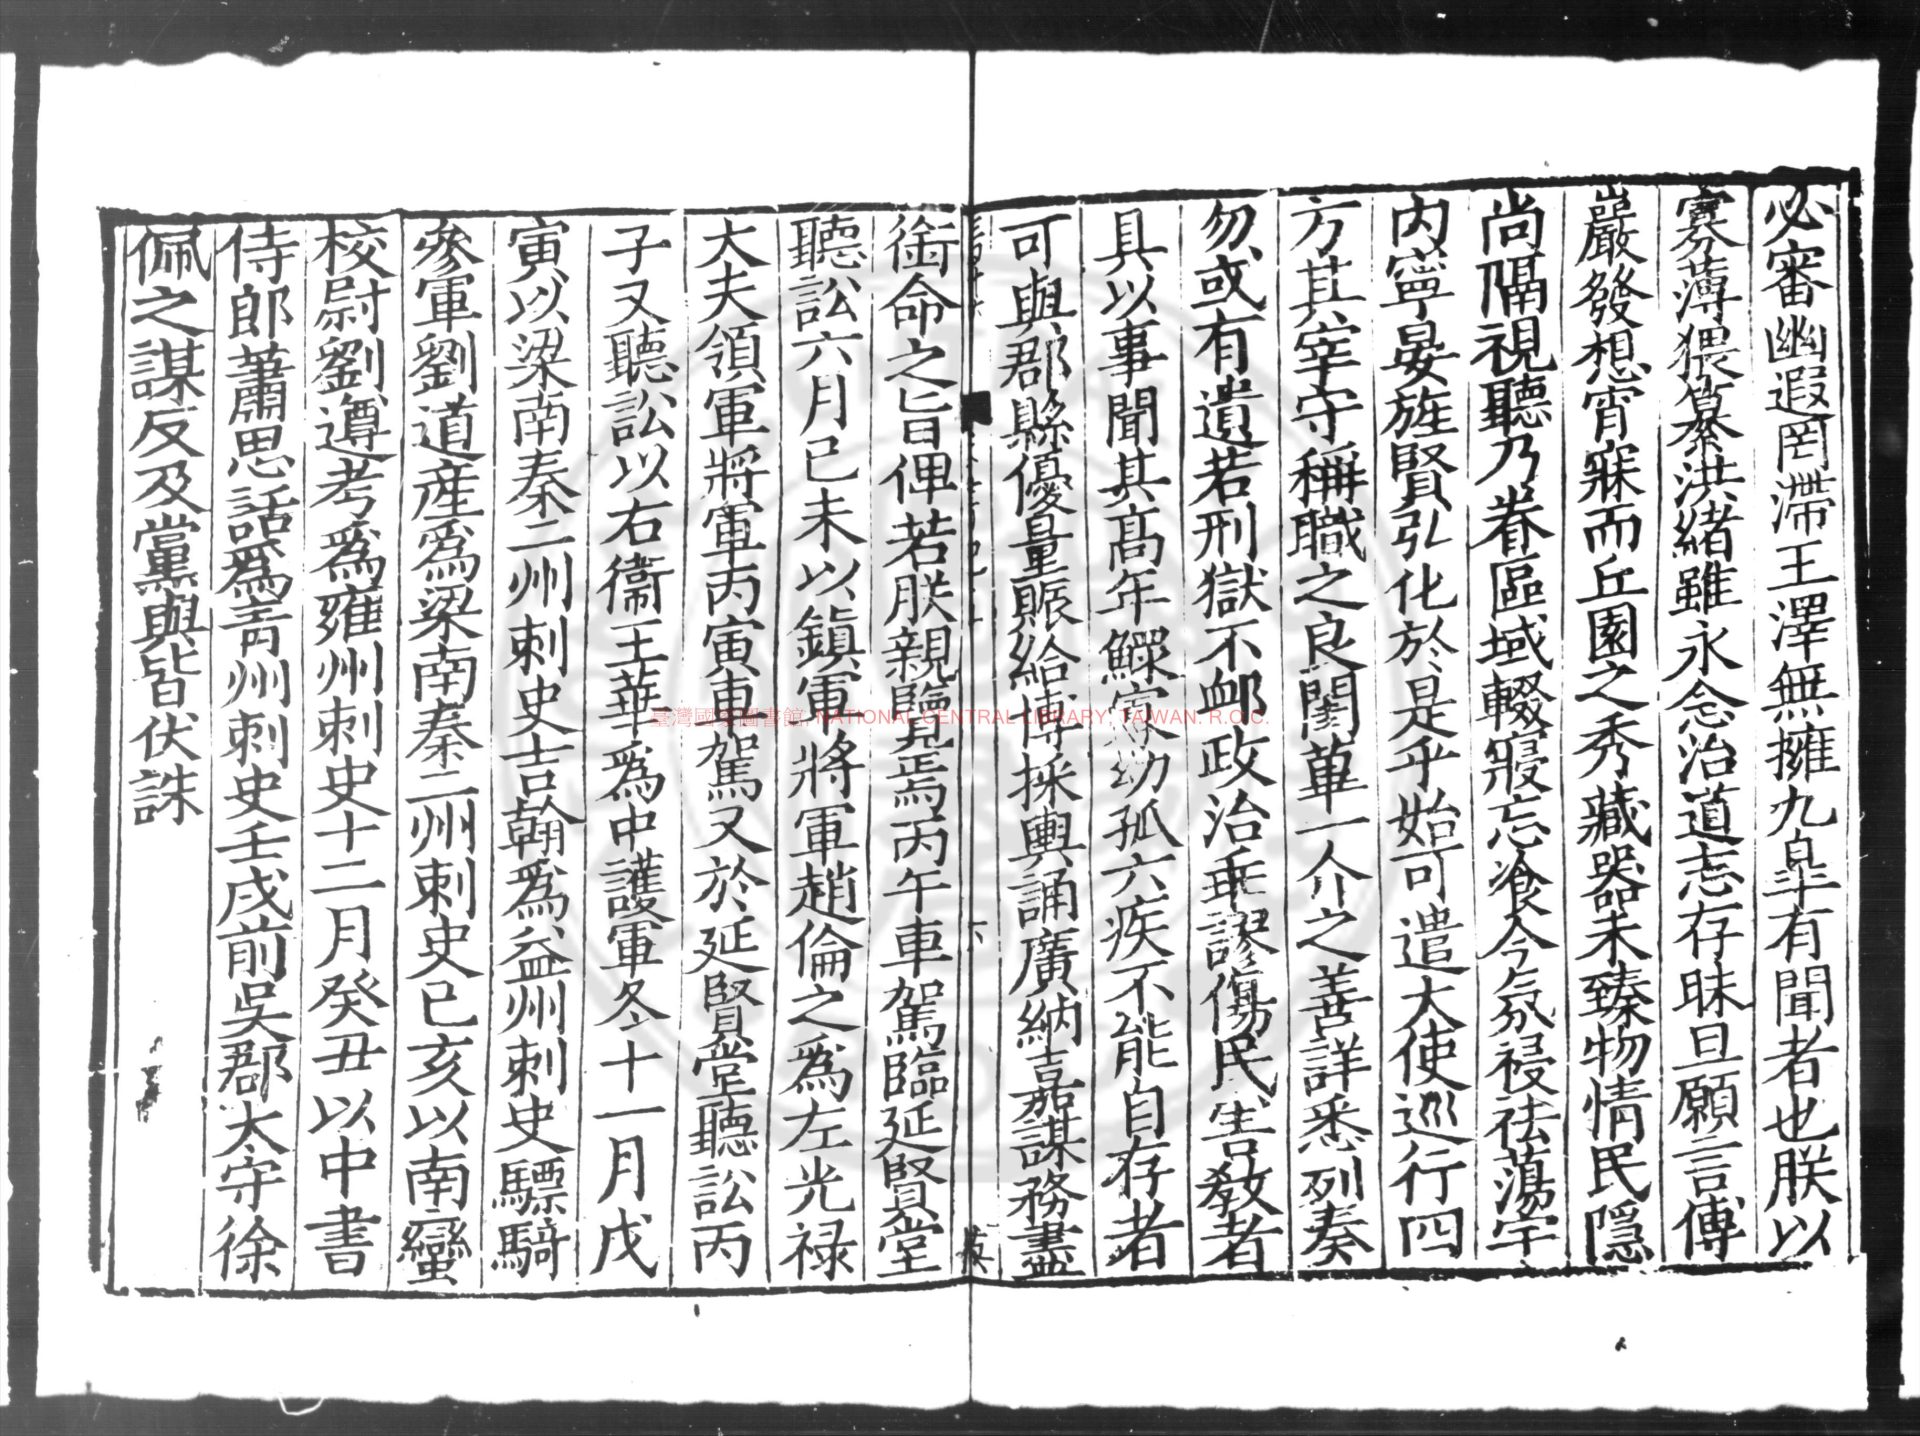 必審幽遐罔滯王澤無擁九臯有聞者也朕以
寡薄猥纂洪緒雖永念治道志存昧旦願言傅
巖發想宵寐而丘園之秀藏器未臻物情民隱
尚隔視聽乃眷區域輟寢忘飡今氛祲祛蕩宇
内寧晏旌賢弘化於是乎始可遣大使巡行四
方其宰守稱職之良閭蓽一介之善詳悉列奏
勿或有遺若刑獄不卹政治乖謬傷民害教者
具以事聞其高年鰥寡幼孤六疾不能自存者
可與郡縣優量賑給博採輿誦廣納嘉謀務盡
銜命之旨俾若朕親覽焉丙午車駕臨延賢堂
聽訟六月己未以鎮軍將軍趙倫之爲左光禄
大夫領軍將軍丙寅車駕又於延賢堂聽訟丙
子又聽訟以右衞王華爲中護軍冬十一月戊
寅以梁南秦二州刺史吉翰爲益州刺史驃騎
參軍劉道産爲梁南秦二州刺史己亥以南蠻
校尉劉遵考爲雍州刺史十二月癸丑以中書
侍郎蕭思話爲青州刺史壬戌前吳郡太守徐
佩之謀反及黨與皆伏誅
臺灣國家圖書館, NATIONAL CENTRAL LIBRARY, TAIWAN. R.O.C.